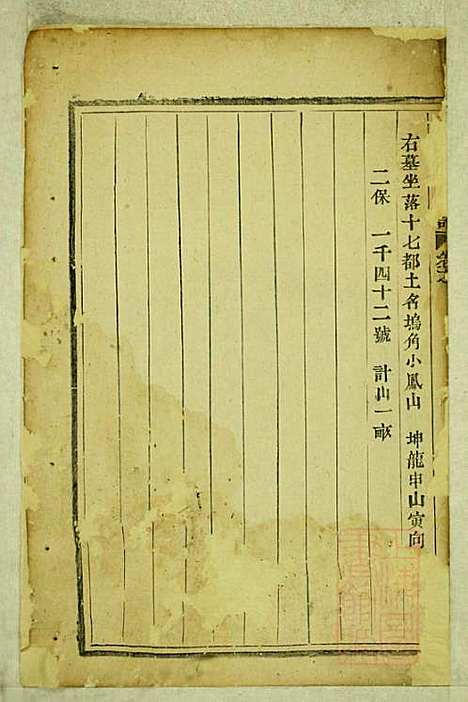 右墓坐落十七都土名塢角小鳳山 坤龍申山寅向
二保 一千四十二號 計山一畝